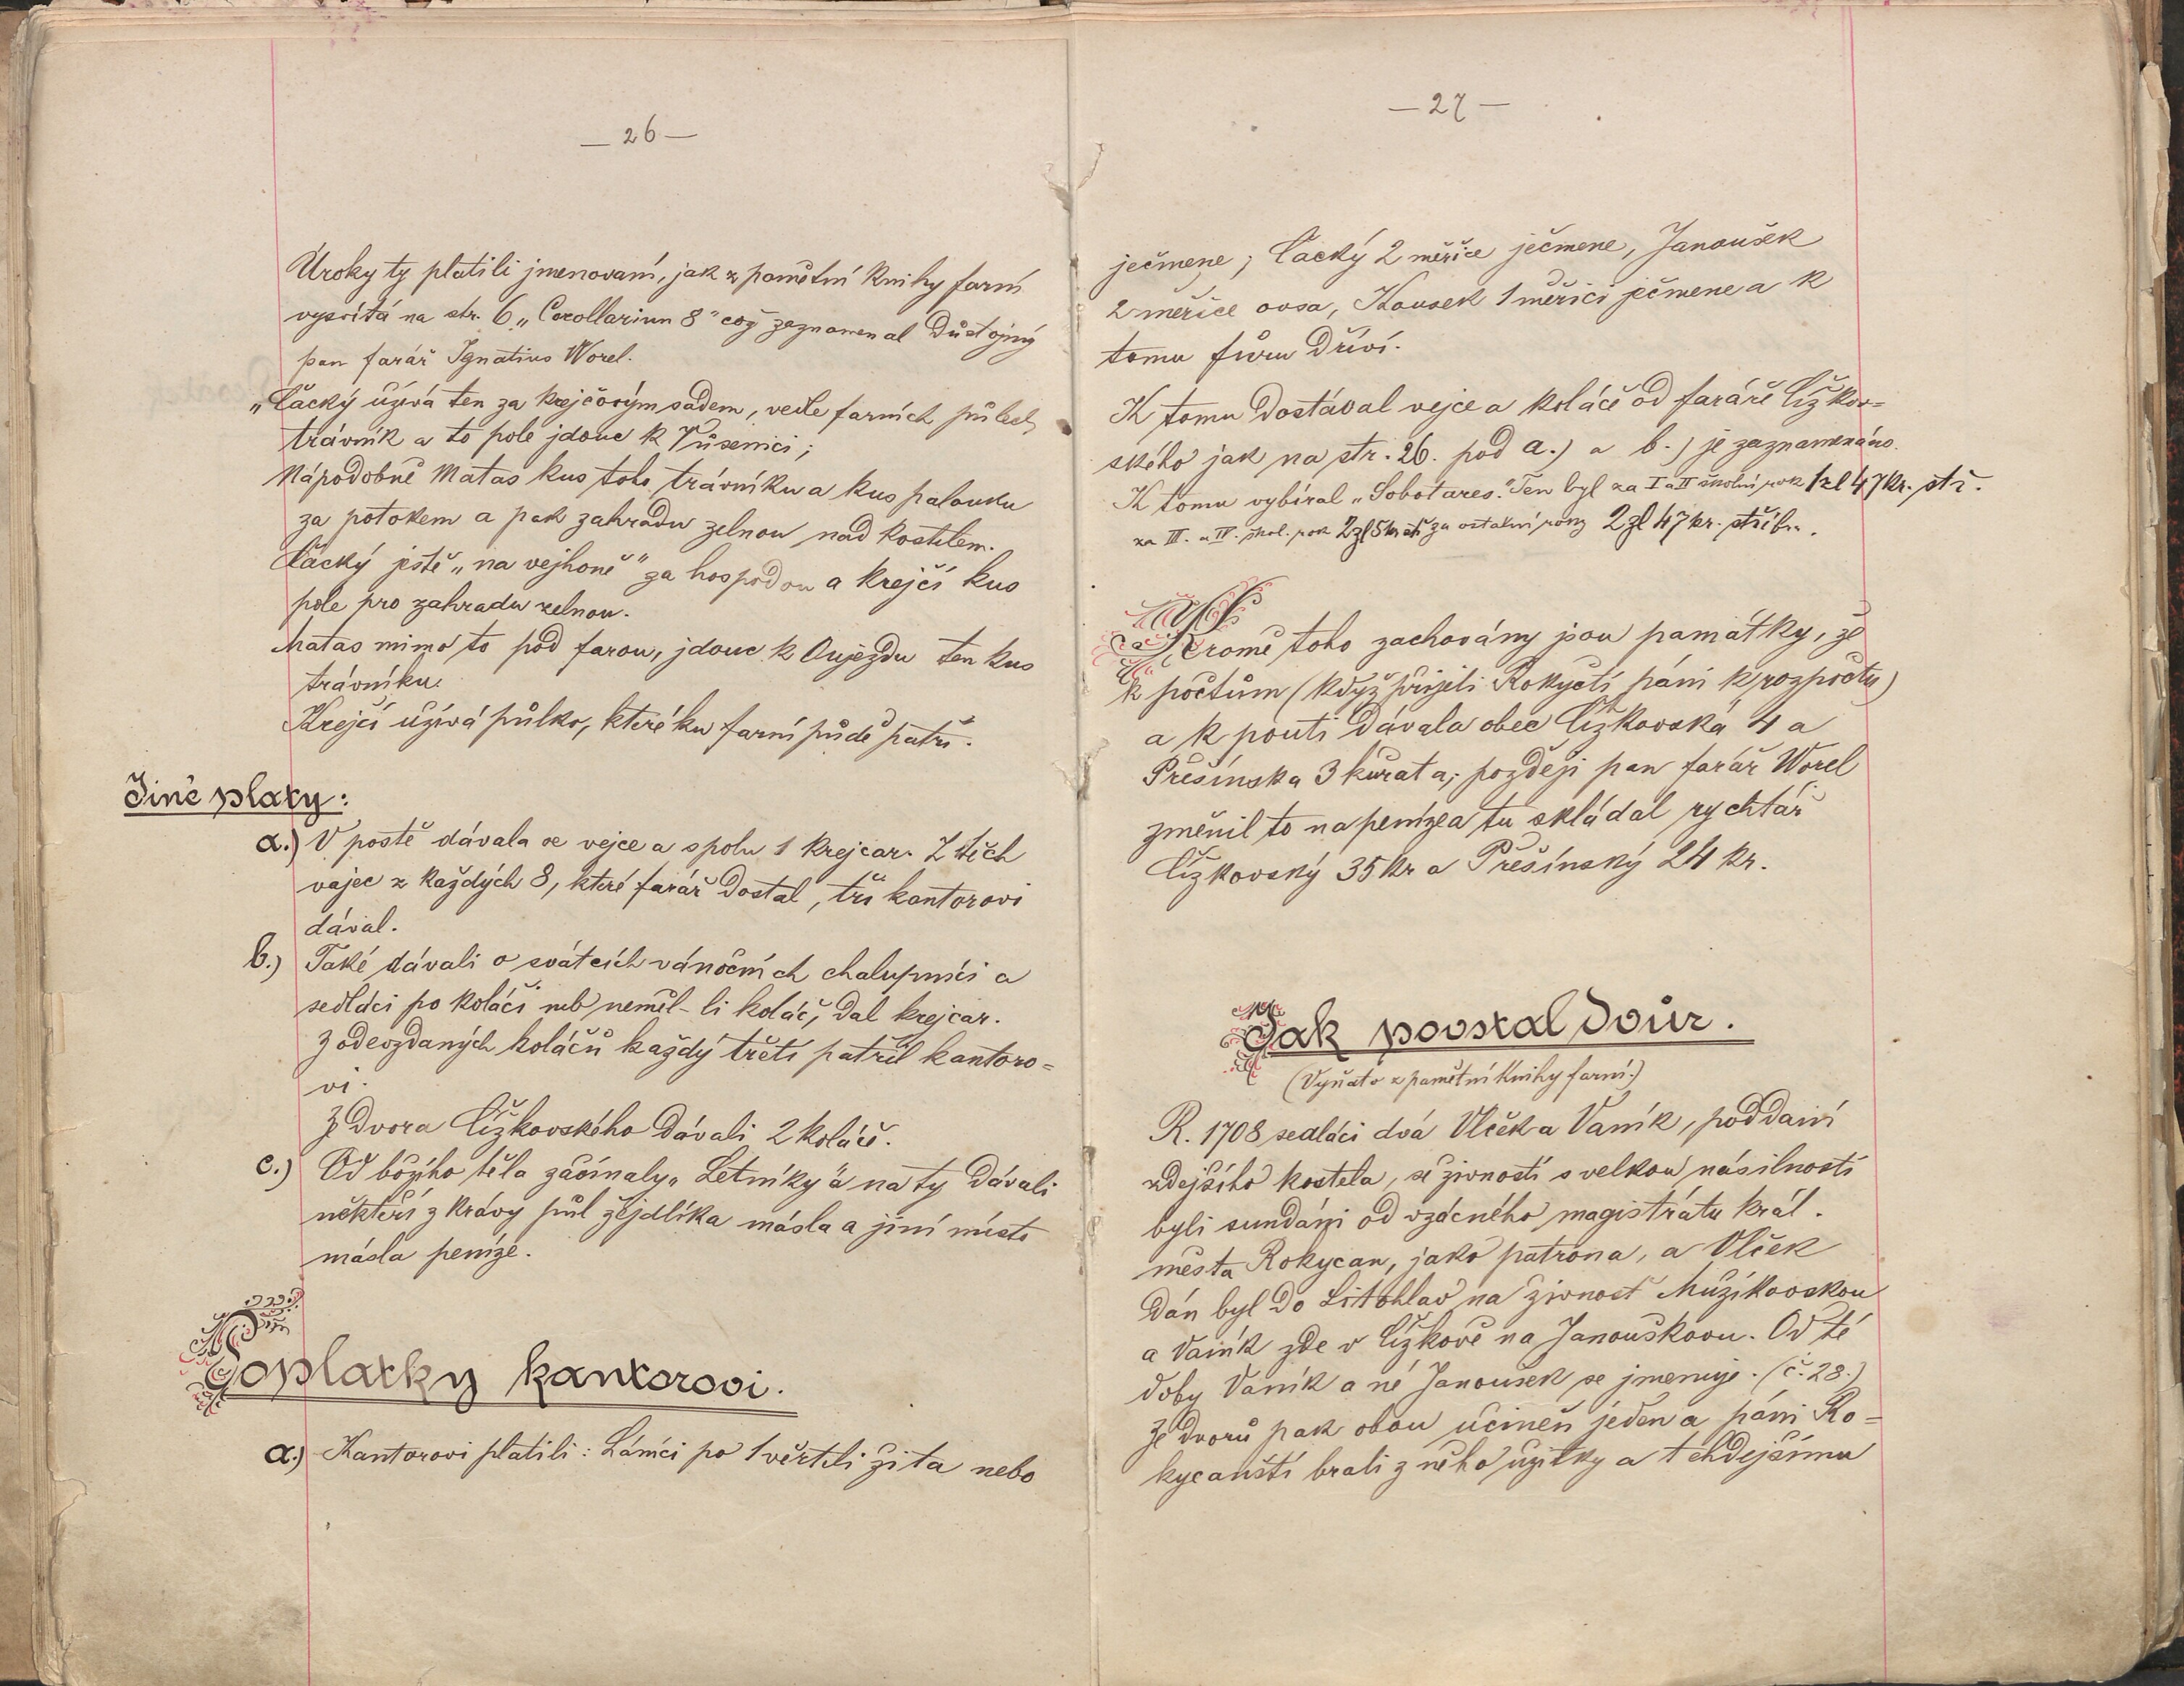 — 26 —
Úroky ty platili jmenovaní, jak z pamětní knihy farní
vysvítá na str. 6 „Corollarium 8" což zaznamenal Důstojný
pan farář Ignatius Worel.
„Čacký užívá ten za krejčovým sadem, vedle farních půlech
trávník a to pole jdouc k Vúsenici;
Nápodobně Matas kus toho trávníku a kus palouku
za potokem a pak zahradu zelnou nad kostelem.
Čacký ještě „na vejhoně" za hospodou a Krejčí kus
pole pro zahradu zelnou.
Matas mimo to pod farou, jdouc k Oujezdu ten kus
trávníku.
Krejčí užívá půlko, které ku farní půdě patří.
Jiné platy:
a.) V postě dávala se vejce a spolu 1 krejcar. Z těch
vajec z každých 8, které farář dostal, tři kantorovi
dával.
b.) Také dávali o svátcích vánočních chalupníci a
sedláci po koláči neb neměl-li koláč, dal krejcar.
Z odevzdaných koláčů každý třetí patřil kantoro=
vi.
Z dvora Čížkovského dávali 2 koláče.
c.) Od božího těla začínaly „Letníky" a na ty dávali
někteří z krávy půl žejdlíka másla a jiní místo
másla peníze.
Poplatky kantorovi.
a.) Kantorovi platili: Láníci po 1 věrteli žita nebo
— 27 —
ječmene; Čacký 2 měřice ječmene, Janoušek
2 měřice ovsa, Kousek 1 měřici ječmene a k
tomu fůru dříví.
K tomu dostával vejce a koláče od faráře Čížkov=
ského jak na str. 26. pod a.) a b.) je zaznamenáno.
K tomu vybíral „Sobotares." Ten byl za I a II školní rok 1 zl 47 kr. stř.
za III. a IV. škol. rok 2 zl 5 kr stř za ostatní roky 2 zl 47 kr. stříbr.
Kromě toho zachovány jsou památky, že
k počtům (když přijeli Rokyčtí páni k rozpočtu)
a k pouti dávala obec Čížkovská 4 a
Přešínska 3 kuřata; později pan farář Worel
změnil to na peníze a tu skládal rychtář
Čížkovský 35 kr a Přešínský 24 kr.
Jak povstal dvůr.
(Vyňato z pamětní knihy farní.)
R. 1708 sedláci dvá Vlček a Vaník, poddaní
zdejšího kostela, se živností s velkou násilností
byli sundáni od vzácného magistrátu král.
města Rokycan, jako patrona, a Vlček
dán byl do Litohlav na živnost Mužíkovskou
a Vaník zde v Čížkově na Janouškovu. Od té
doby Vaník a né Janoušek se jmenuje. (č. 28.)
Ze dvorů pak obou učiněn jeden a páni Ro=
kycanští brali z něho užitky a tehdejšímu